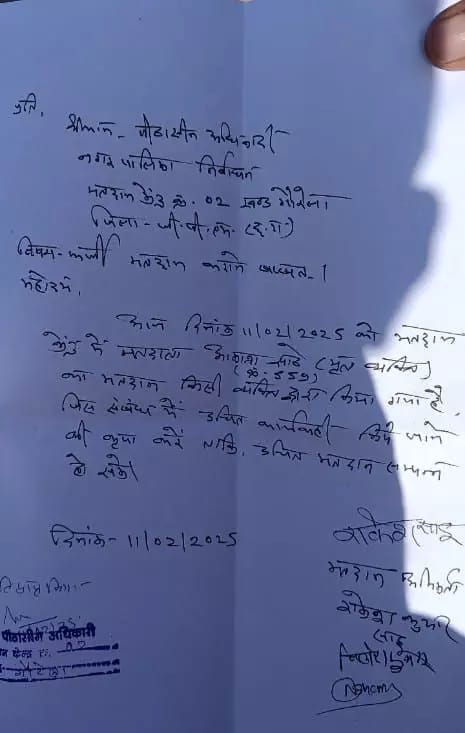 प्रति,
श्रीमान - पीठासीन अधिकारी
नगर पालिका निर्वाचन
मतदान केंद्र क्र. 02 खण्ड गौरेला
जिला - जी.पी.एम. (छ.ग.)
विषय - फर्जी मतदान कराने बाबत - ।
महोदय,
आज दिनांक 11/02/2025 को मतदान
केंद्र में मतदाता साहू (मृत व्यक्ति)
(क्र. 559)
का मतदान किसी व्यक्ति द्वारा किया गया है,
जिस संबंध में उचित कार्यवाही किये जाने
की कृपा करें ताकि, उचित मतदान सम्पन्न
हो सके।
दिनांक - 11/02/2025
राकेश साहू
मतदान अभिकर्ता
राकेश कुमार
साहू
पीठासीन अधिकारी
02
गौरेला